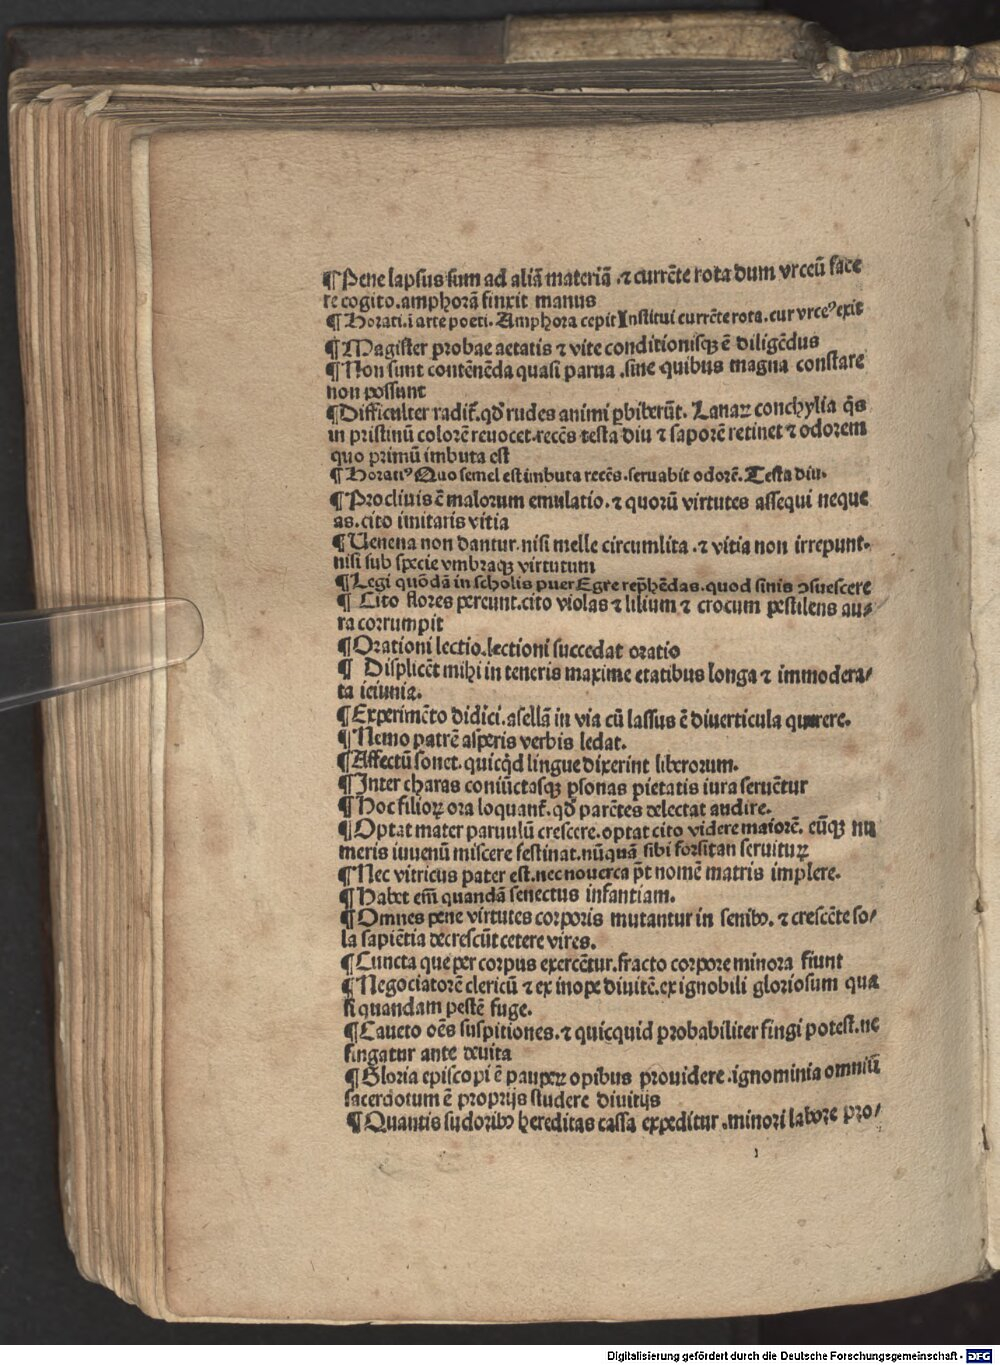 ¶Pene lapsus sum ad aliā materiā .⁊ currēte rota dum vrceū face
re cogito.amphorā finxit manus
¶Horati.ī arte poeti.Amphora cepit Institui currēte rota.cur vrceꝰ exit
¶Magister probae aetatis ⁊ vite conditionisqꝫ ē diligēdus
¶Non sunt contēnēda quasi parua .sine quibus magna constare
non possunt
¶Difficulter radit̄.qđ rudes animi ꝑbiberūt. Lanaꝝ conchylia q̄s
in pristinū colorē reuocet.recēs testa diu ⁊ saporē retinet ⁊ odorem
quo primū imbuta est
¶Horatiꝰ Quo semel est imbuta recēs.seruabit odorē.Testa diu.
¶Procliuis ē malorum emulatio.⁊ quorū virtutes assequi neque
as.cito imitaris vitia
¶Uenena non dantur.nisi melle circumlita .⁊ vitia non irrepunt.
nisi sub specie vmbraqꝫ virtutum
¶Legi quōdā in scholis puer Egre rep̄hēdas.quod sinis ↄsuescere
¶ Cito flores pereunt.cito violas ⁊ lilium ⁊ crocum pestilens au⸗
ra corrumpit
¶Orationi lectio.lectioni succedat oratio
¶ Displicēt mihi in teneris maxime etatibus longa ⁊ immodera⸗
ta ieiunia.
¶Experimēto didici.asellā in via cū lassus ē diuerticula querere.
¶Nemo patrē asperis verbis ledat.
¶Affectū sonet.quicq̇d lingue dixerint liberorum.
¶Inter charas coniūctasqꝫ ꝑsonas pietatis iura seruētur
¶Hoc filioꝝ ora loquant̄.qđ parētes delectat audire.
¶Optat mater paruulū crescere.optat cito videre maiorē. eūqꝫ nu
meris iuuenū miscere festinat.nūquā sibi forsitan seruituꝝ
¶Nec vitricus pater est.nec nouerca p̄t nomē matris implere.
¶Habet em̄ quandā senectus infantiam.
¶Omnes pene virtutes corporis mutantur in senibꝰ. ⁊ crescēte so⸗
la sapiētia decrescūt cetere vires.
¶Cuncta que per corpus exercētur.fracto corpore minora fiunt
¶Negociatorē clericū ⁊ ex inope diuitē.ex ignobili gloriosum qua
si quandam pestē fuge.
¶Caueto oēs suspitiones.⁊ quicquid probabiliter fingi potest.ne
fingatur ante deuita
¶Gloria episcopi ē pauperꝝ opibus prouidere.ignominia omniū
sacerdotum ē proprijs studere diuitijs
¶Quantis sudoribꝰ hereditas cassa expeditur.minori labore pro⸗
Digitalisierung gefördert durch die Deutsche Forschungsgemeinschaft - DFG